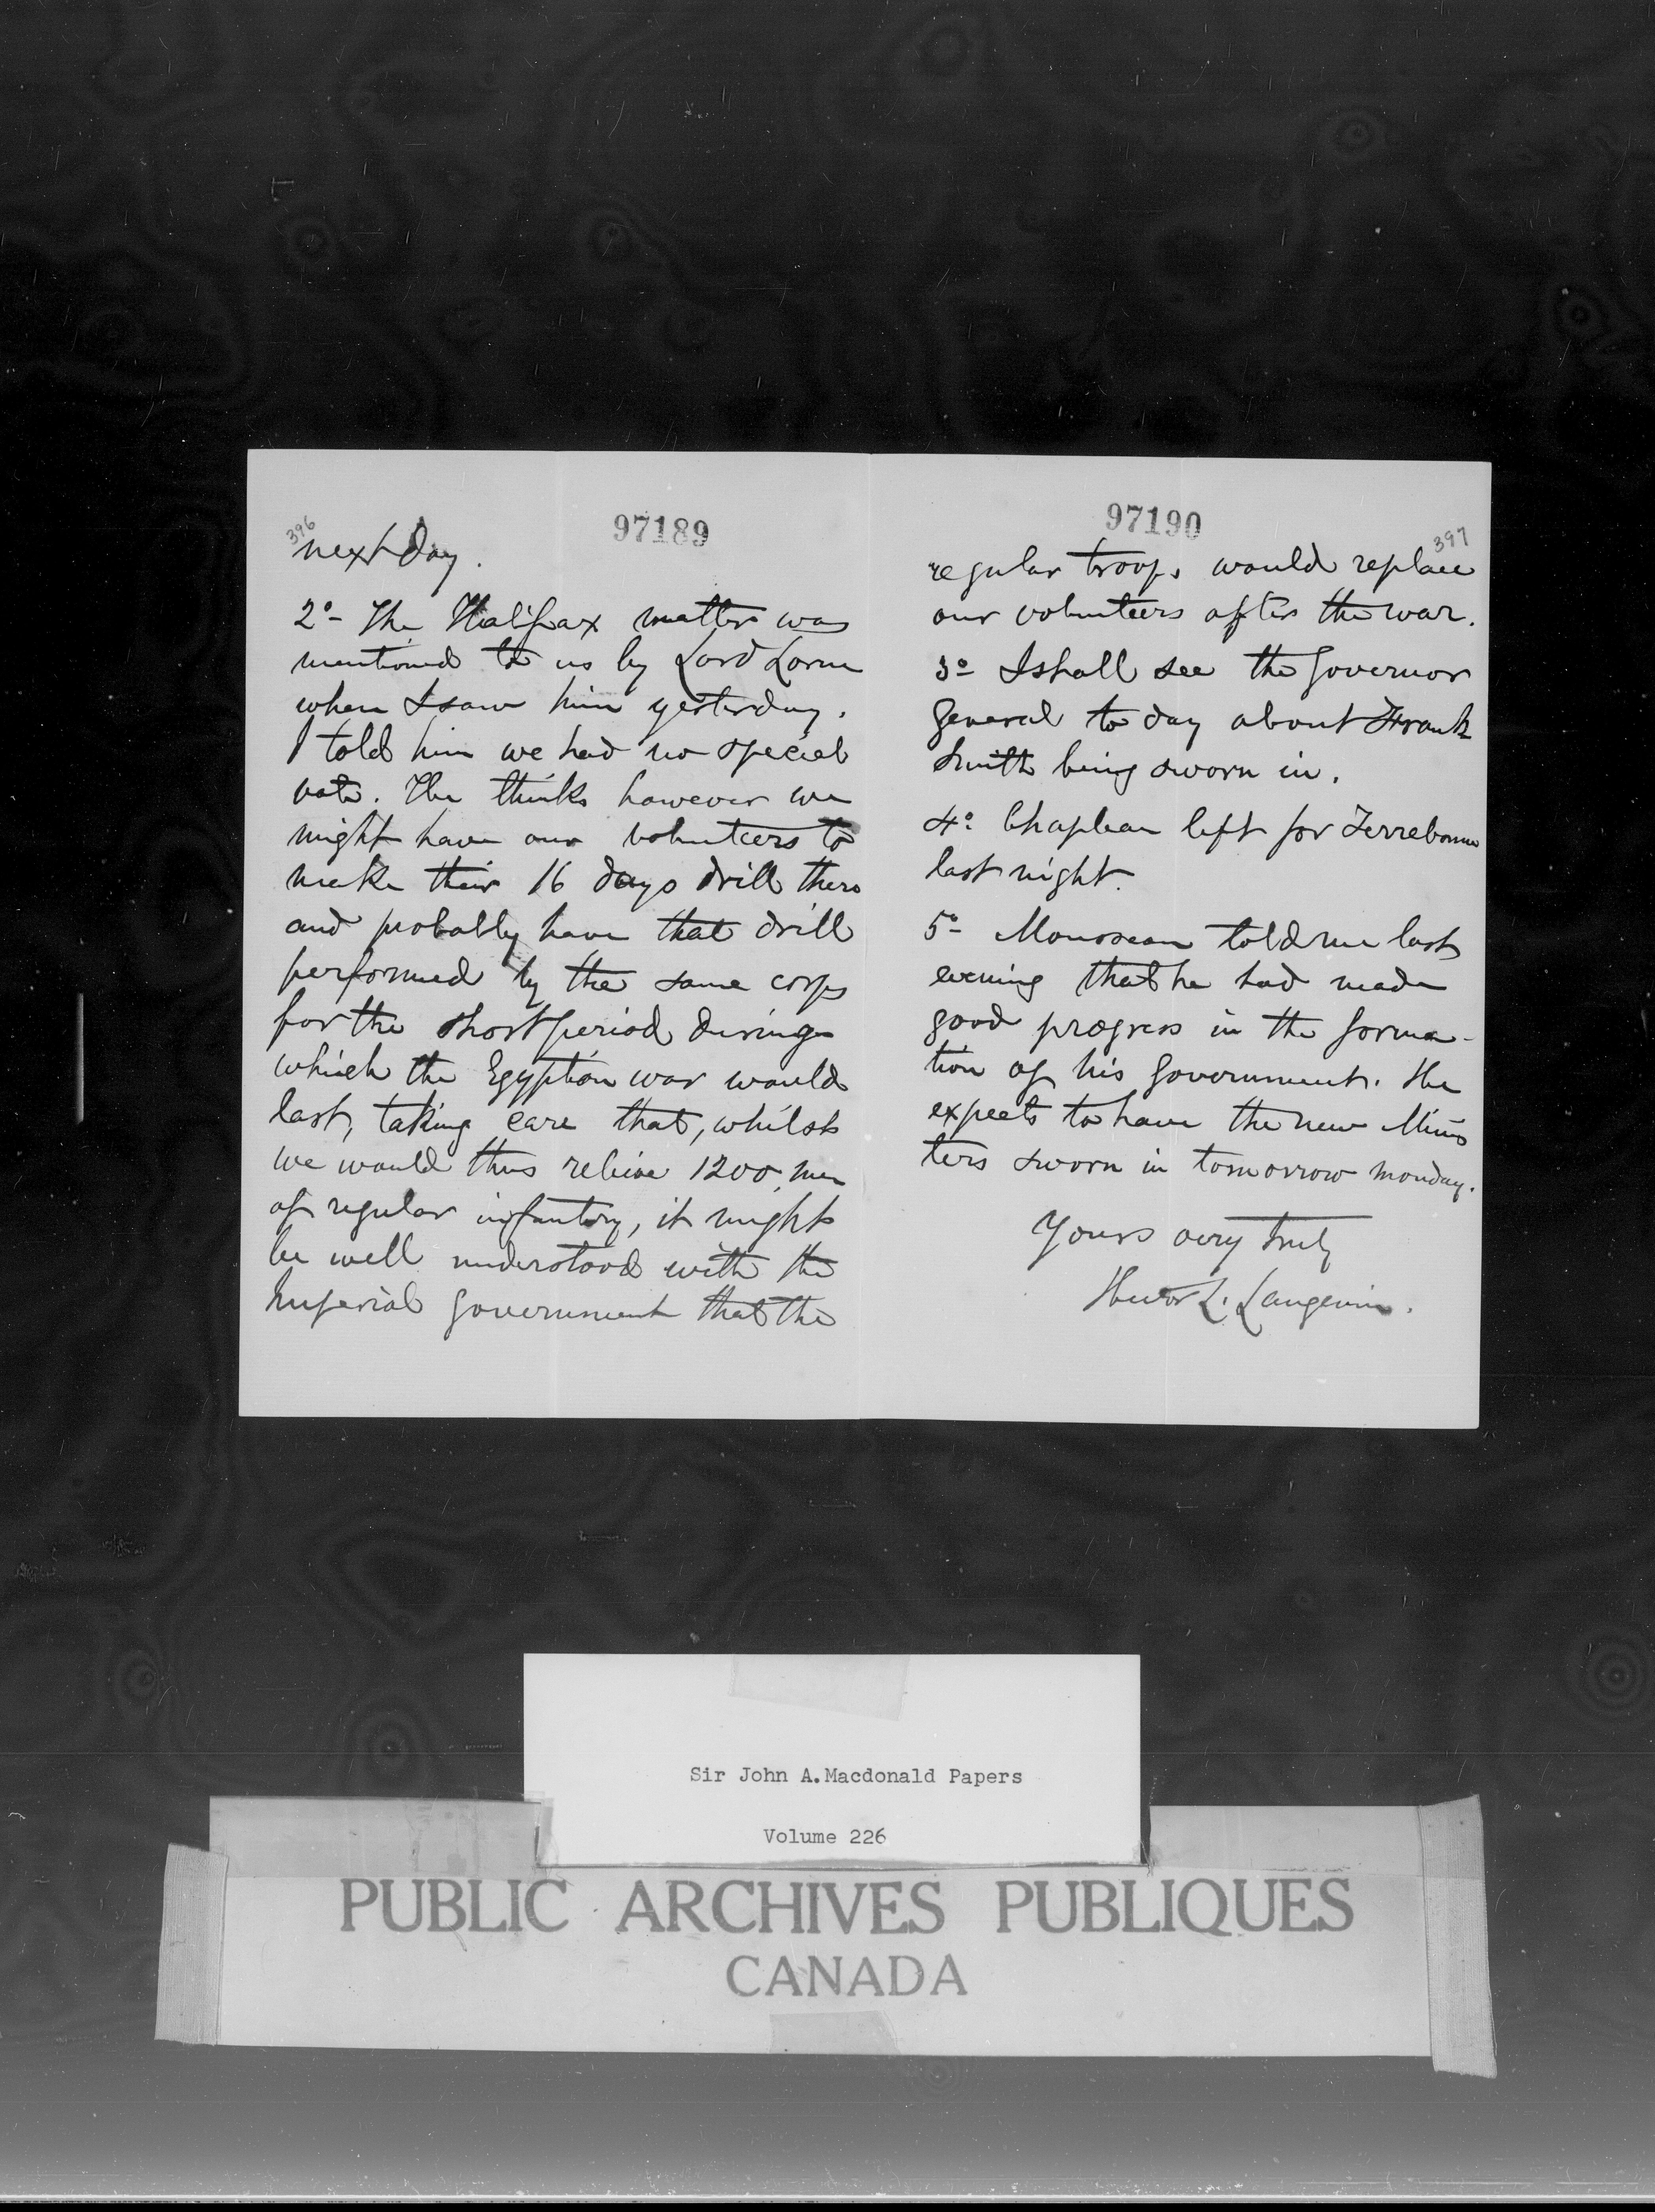 396
97189
next day.
2o- The Halifax matter was
mentioned to us by Lord Lorne
when I saw him yesterday.
I told him we had no special
vote. He thinks however we
might have our volunteers to
make their 16 days drill there
and probably have that drill
performed by the same corps
for the short period during
which the Egyptian war would
last, taking care that, whilst
we would thus relieve 1200 men
of regular infantry, it might
be well understood with the
Imperial Government that the
97190
397
regular troops would replace
our volunteers after the war.
3o- I shall see the Governor
General to day about Frank
Smith being sworn in.
4o- Chapleau left for Terrebonne
last night.
5o- Mousseau told me last
evening that he had made
good progress in the forma-
tion of his Government. He
expects to have the new Minis
ters sworn in tomorrow monday.
Yours very truly
Hector L. Langevin.
Sir John A. Macdonald Papers
Volume 226
PUBLIC ARCHIVES PUBLIQUES
CANADA